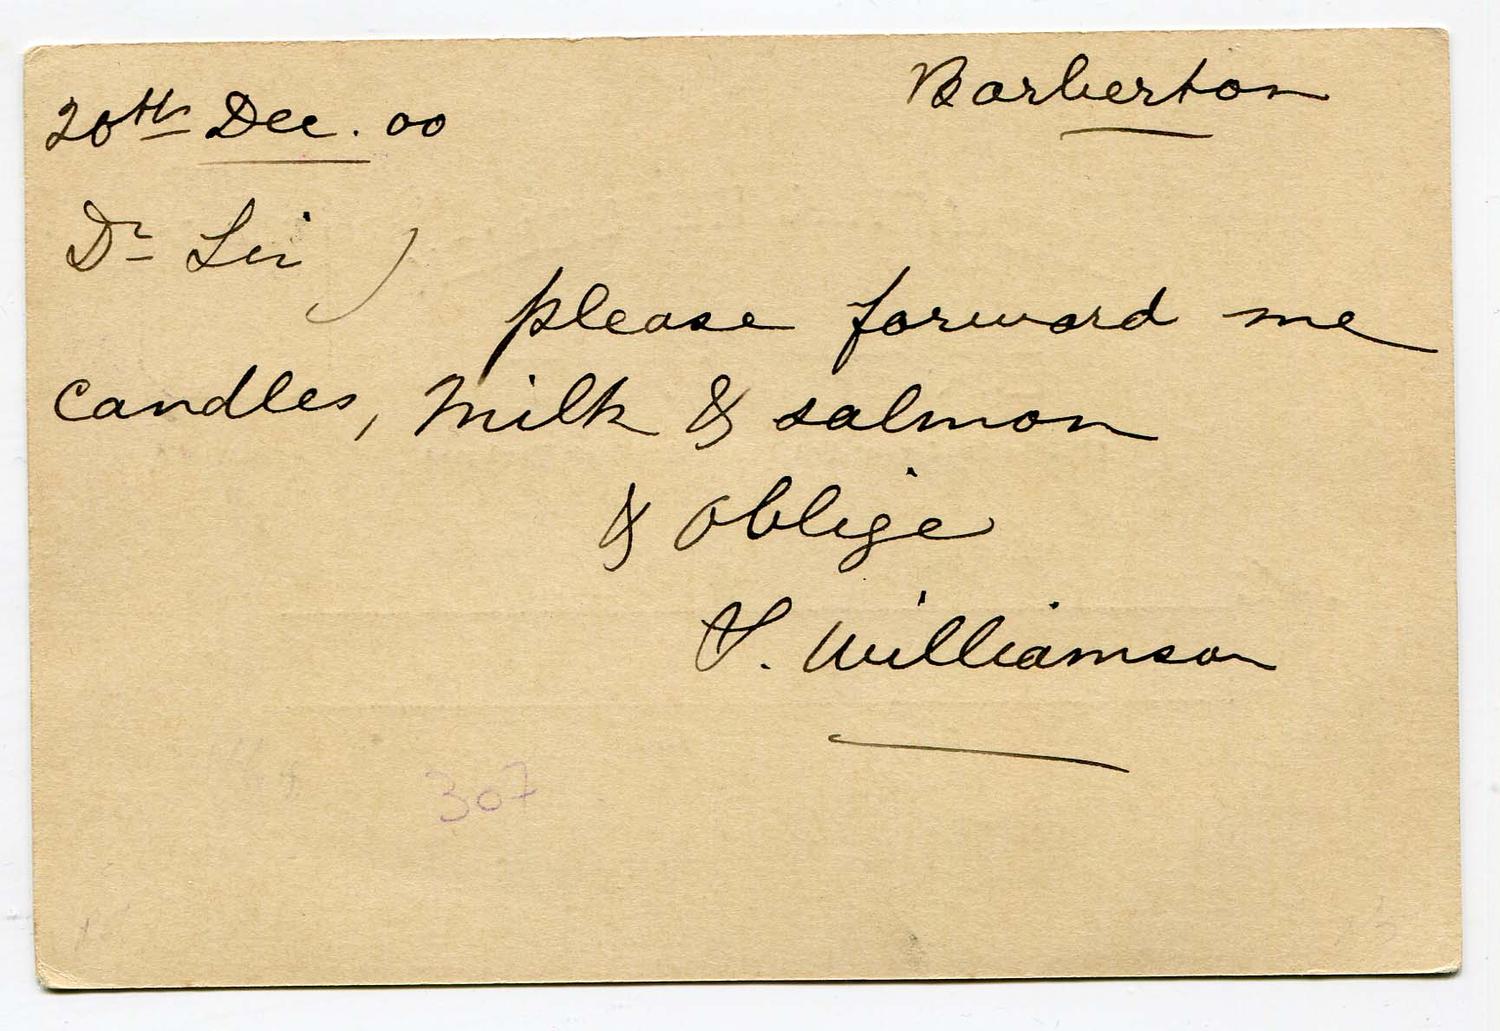 Barberton
20th Dec. 00
Dr Sir
please forward me
candles, Milk & salmon
& oblige
Williamson
307